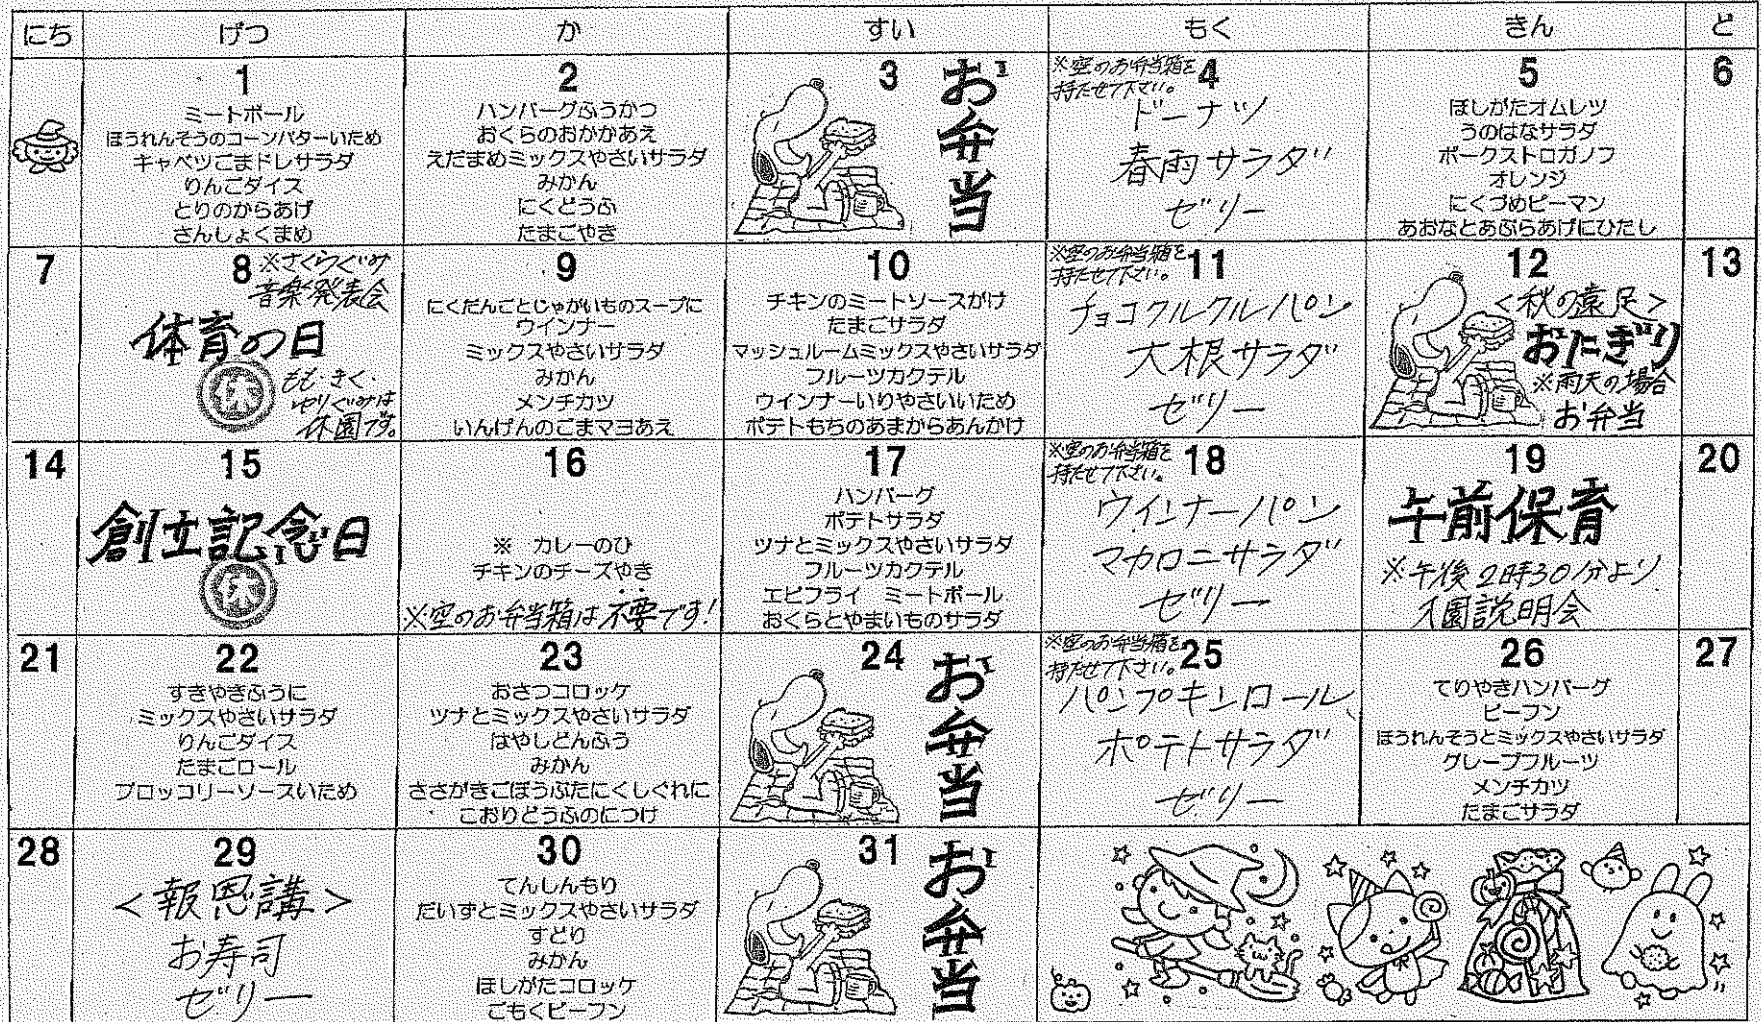 にち げつ か すい もく きん ど
1
ミートボール
ほうれんそうのコーンバターいため
キャベツごまドレサラダ
りんごダイス
とりのからあげ
さんしょくまめ
2
ハンバーグふうかつ
おくらのおかかあえ
えだまめミックスやさいサラダ
みかん
にくどうふ
たまごやき
3
お弁当
※空のお弁当箱を
持たせて下さい。
4
ドーナツ
春雨サラダ
ゼリー
5
ほしがたオムレツ
うのはなサラダ
ポークストロガノフ
オレンジ
にくづめピーマン
あおなとあぶらあげにひたし
6
7
8
※さくらぐみ
音楽発表会
体育の日
休
もも・きく・
ゆりぐみは
休園です。
9
にくだんごとじゃがいものスープに
ウインナー
ミックスやさいサラダ
みかん
メンチカツ
いんげんのごまマヨあえ
10
チキンのミートソースがけ
たまごサラダ
マッシュルームミックスやさいサラダ
フルーツカクテル
ウインナーいりやさいいため
ポテトもちのあまからあんかけ
※空のお弁当箱を
持たせて下さい。
11
チョコクルクルパン
大根サラダ
ゼリー
12
<秋の遠足>
おにぎり
※雨天の場合
お弁当
13
14
15
創立記念日
休
16
※ カレーのひ
チキンのチーズやき
※空のお弁当箱は不要です!
17
ハンバーグ
ポテトサラダ
ツナとミックスやさいサラダ
フルーツカクテル
エビフライ ミートボール
おくらとやまいものサラダ
※空のお弁当箱を
持たせて下さい。
18
ウインナーパン
マカロニサラダ
ゼリー
19
午前保育
※午後2時30分より
入園説明会
20
21
22
すきやきふうに
ミックスやさいサラダ
りんごダイス
たまごロール
ブロッコリーソースいため
23
おさつコロッケ
ツナとミックスやさいサラダ
はやしどんふう
みかん
ささがきごぼうぶたにくしぐれに
こおりどうふのにつけ
24
お弁当
※空のお弁当箱を
持たせて下さい。
25
パンプキンロール
ポテトサラダ
ゼリー
26
てりやきハンバーグ
ビーフン
ほうれんそうとミックスやさいサラダ
グレープフルーツ
メンチカツ
たまごサラダ
27
28
29
<報恩講>
お寿司
ゼリー
30
てんしんもり
だいずとミックスやさいサラダ
すどり
みかん
ほしがたコロッケ
ごもくビーフン
31
お弁当